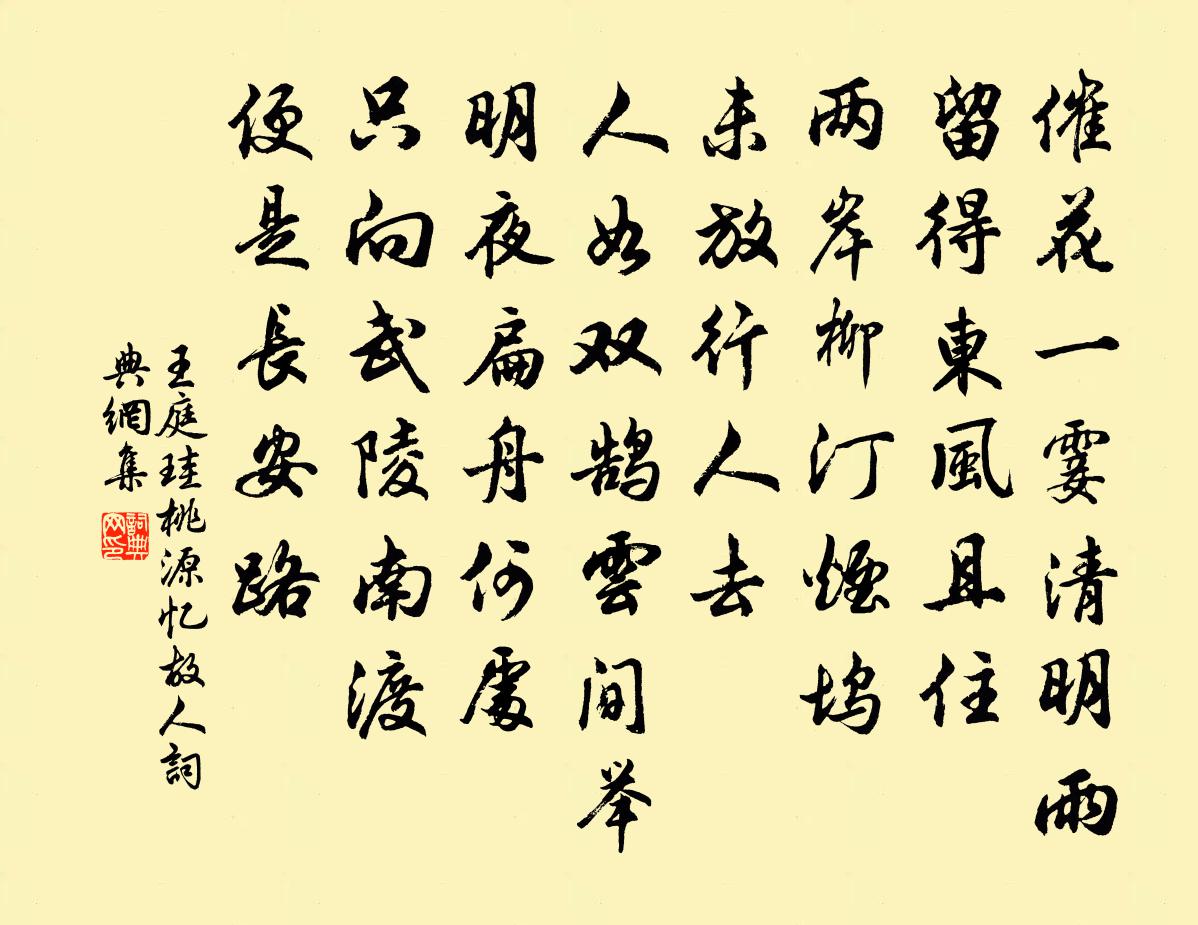 催花一霎清明雨
留得東風且住
两岸柳汀煙坞
未放行人去
人如双鹄雲间举
明夜扁舟何處
只向武陵南渡
便是長安路
王庭珪桃源忆故人詞
典網集
詞典
网印